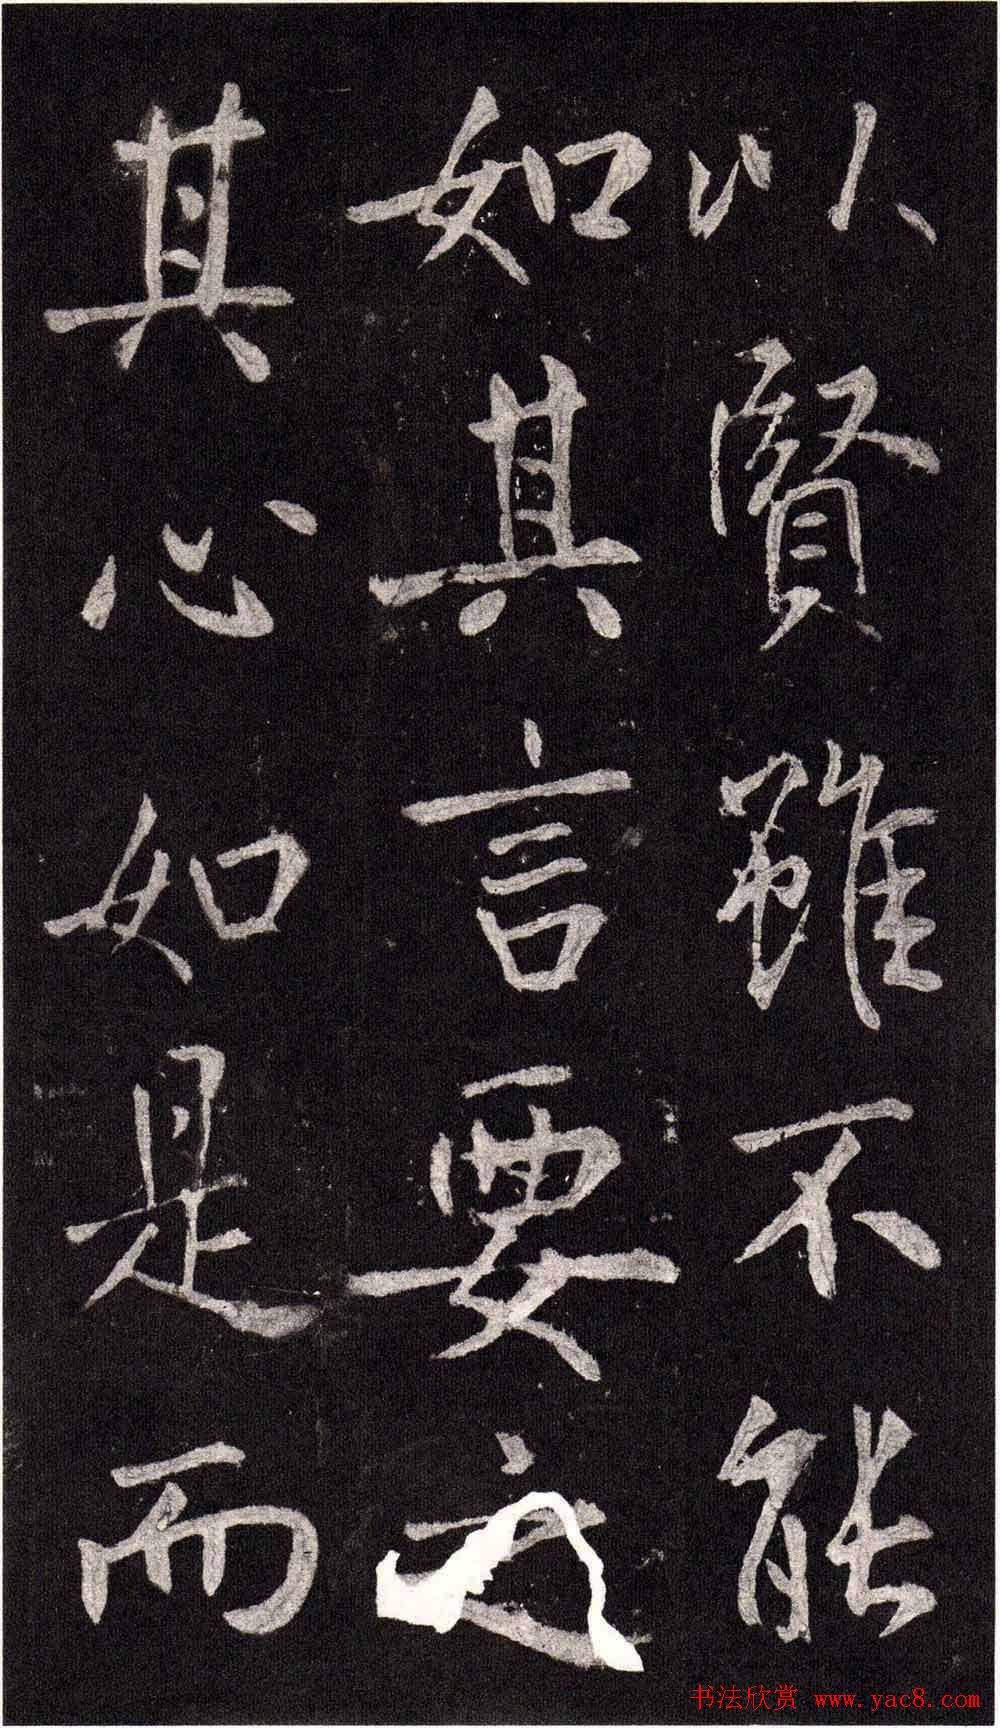 以贤雖不能
如其言要之
其心如是而
书法欣赏 www.yac8.com